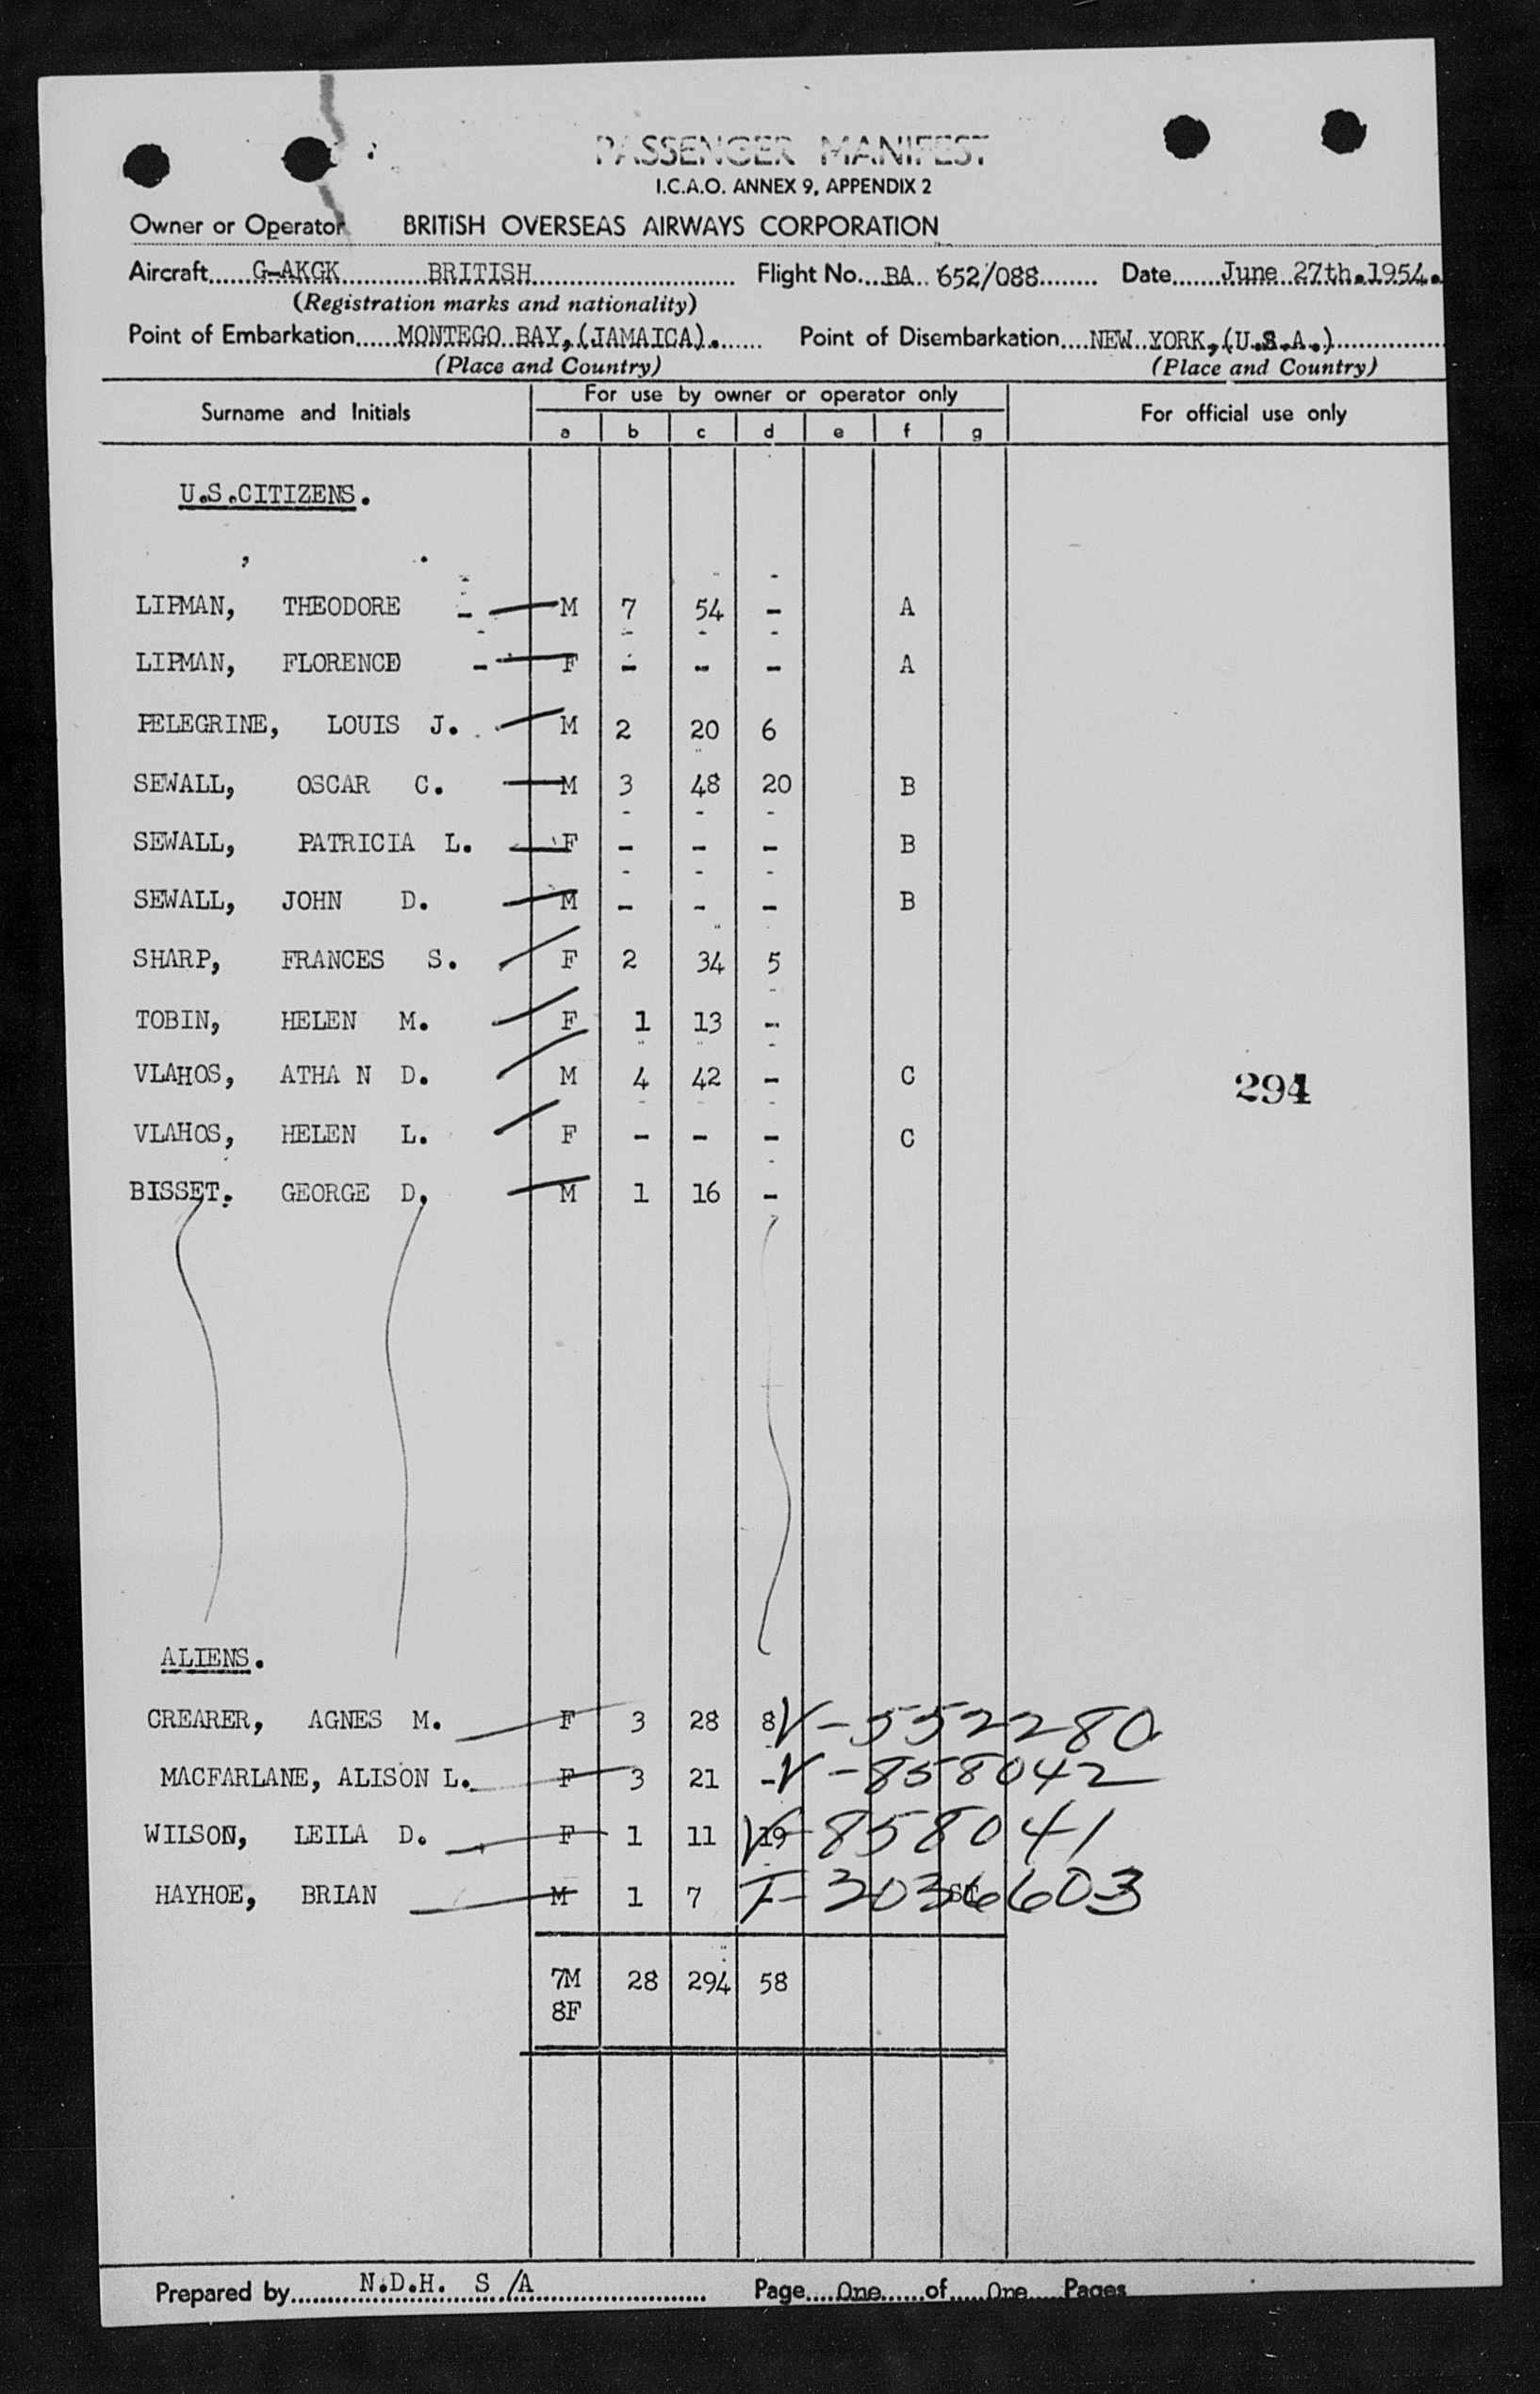 PASSENGER MANIFEST
I.C.A.O. ANNEX 9, APPENDIX 2
Owner or Operator BRITISH OVERSEAS AIRWAYS CORPORATION
Aircraft G-AKGK BRITISH Flight No. BA 652/088 Date June 27th.1954.
(Registration marks and nationality)
Point of Embarkation MONTEGO BAY, (JAMAICA). Point of Disembarkation NEW YORK, (U.S.A.)
(Place and Country) (Place and Country)
Surname and Initials For use by owner or operator only For official use only
a b c d e f g
U.S.CITIZENS.
, .
LIPMAN, THEODORE - M 7 54 - A
LIPMAN, FLORENCE - F - - - A
PELEGRINE, LOUIS J. M 2 20 6
SEWALL, OSCAR C. M 3 48 20 B
SEWALL, PATRICIA L. F - - - B
SEWALL, JOHN D. M - - - B
SHARP, FRANCES S. F 2 34 5
TOBIN, HELEN M. F 1 13 -
VLAHOS, ATHA N D. M 4 42 - C
294
VLAHOS, HELEN L. F - - - C
BISSET. GEORGE D. M 1 16 -
ALIENS.
CREARER, AGNES M. F 3 28 8 V-552280
MACFARLANE, ALISON L. F 3 21 - V-858042
WILSON, LEILA D. F 1 11 19 V-858041
HAYHOE, BRIAN M 1 7 - T-3036603
7M 28 294 58
8F
Prepared by N.D.H. S/A Page One of One Pages